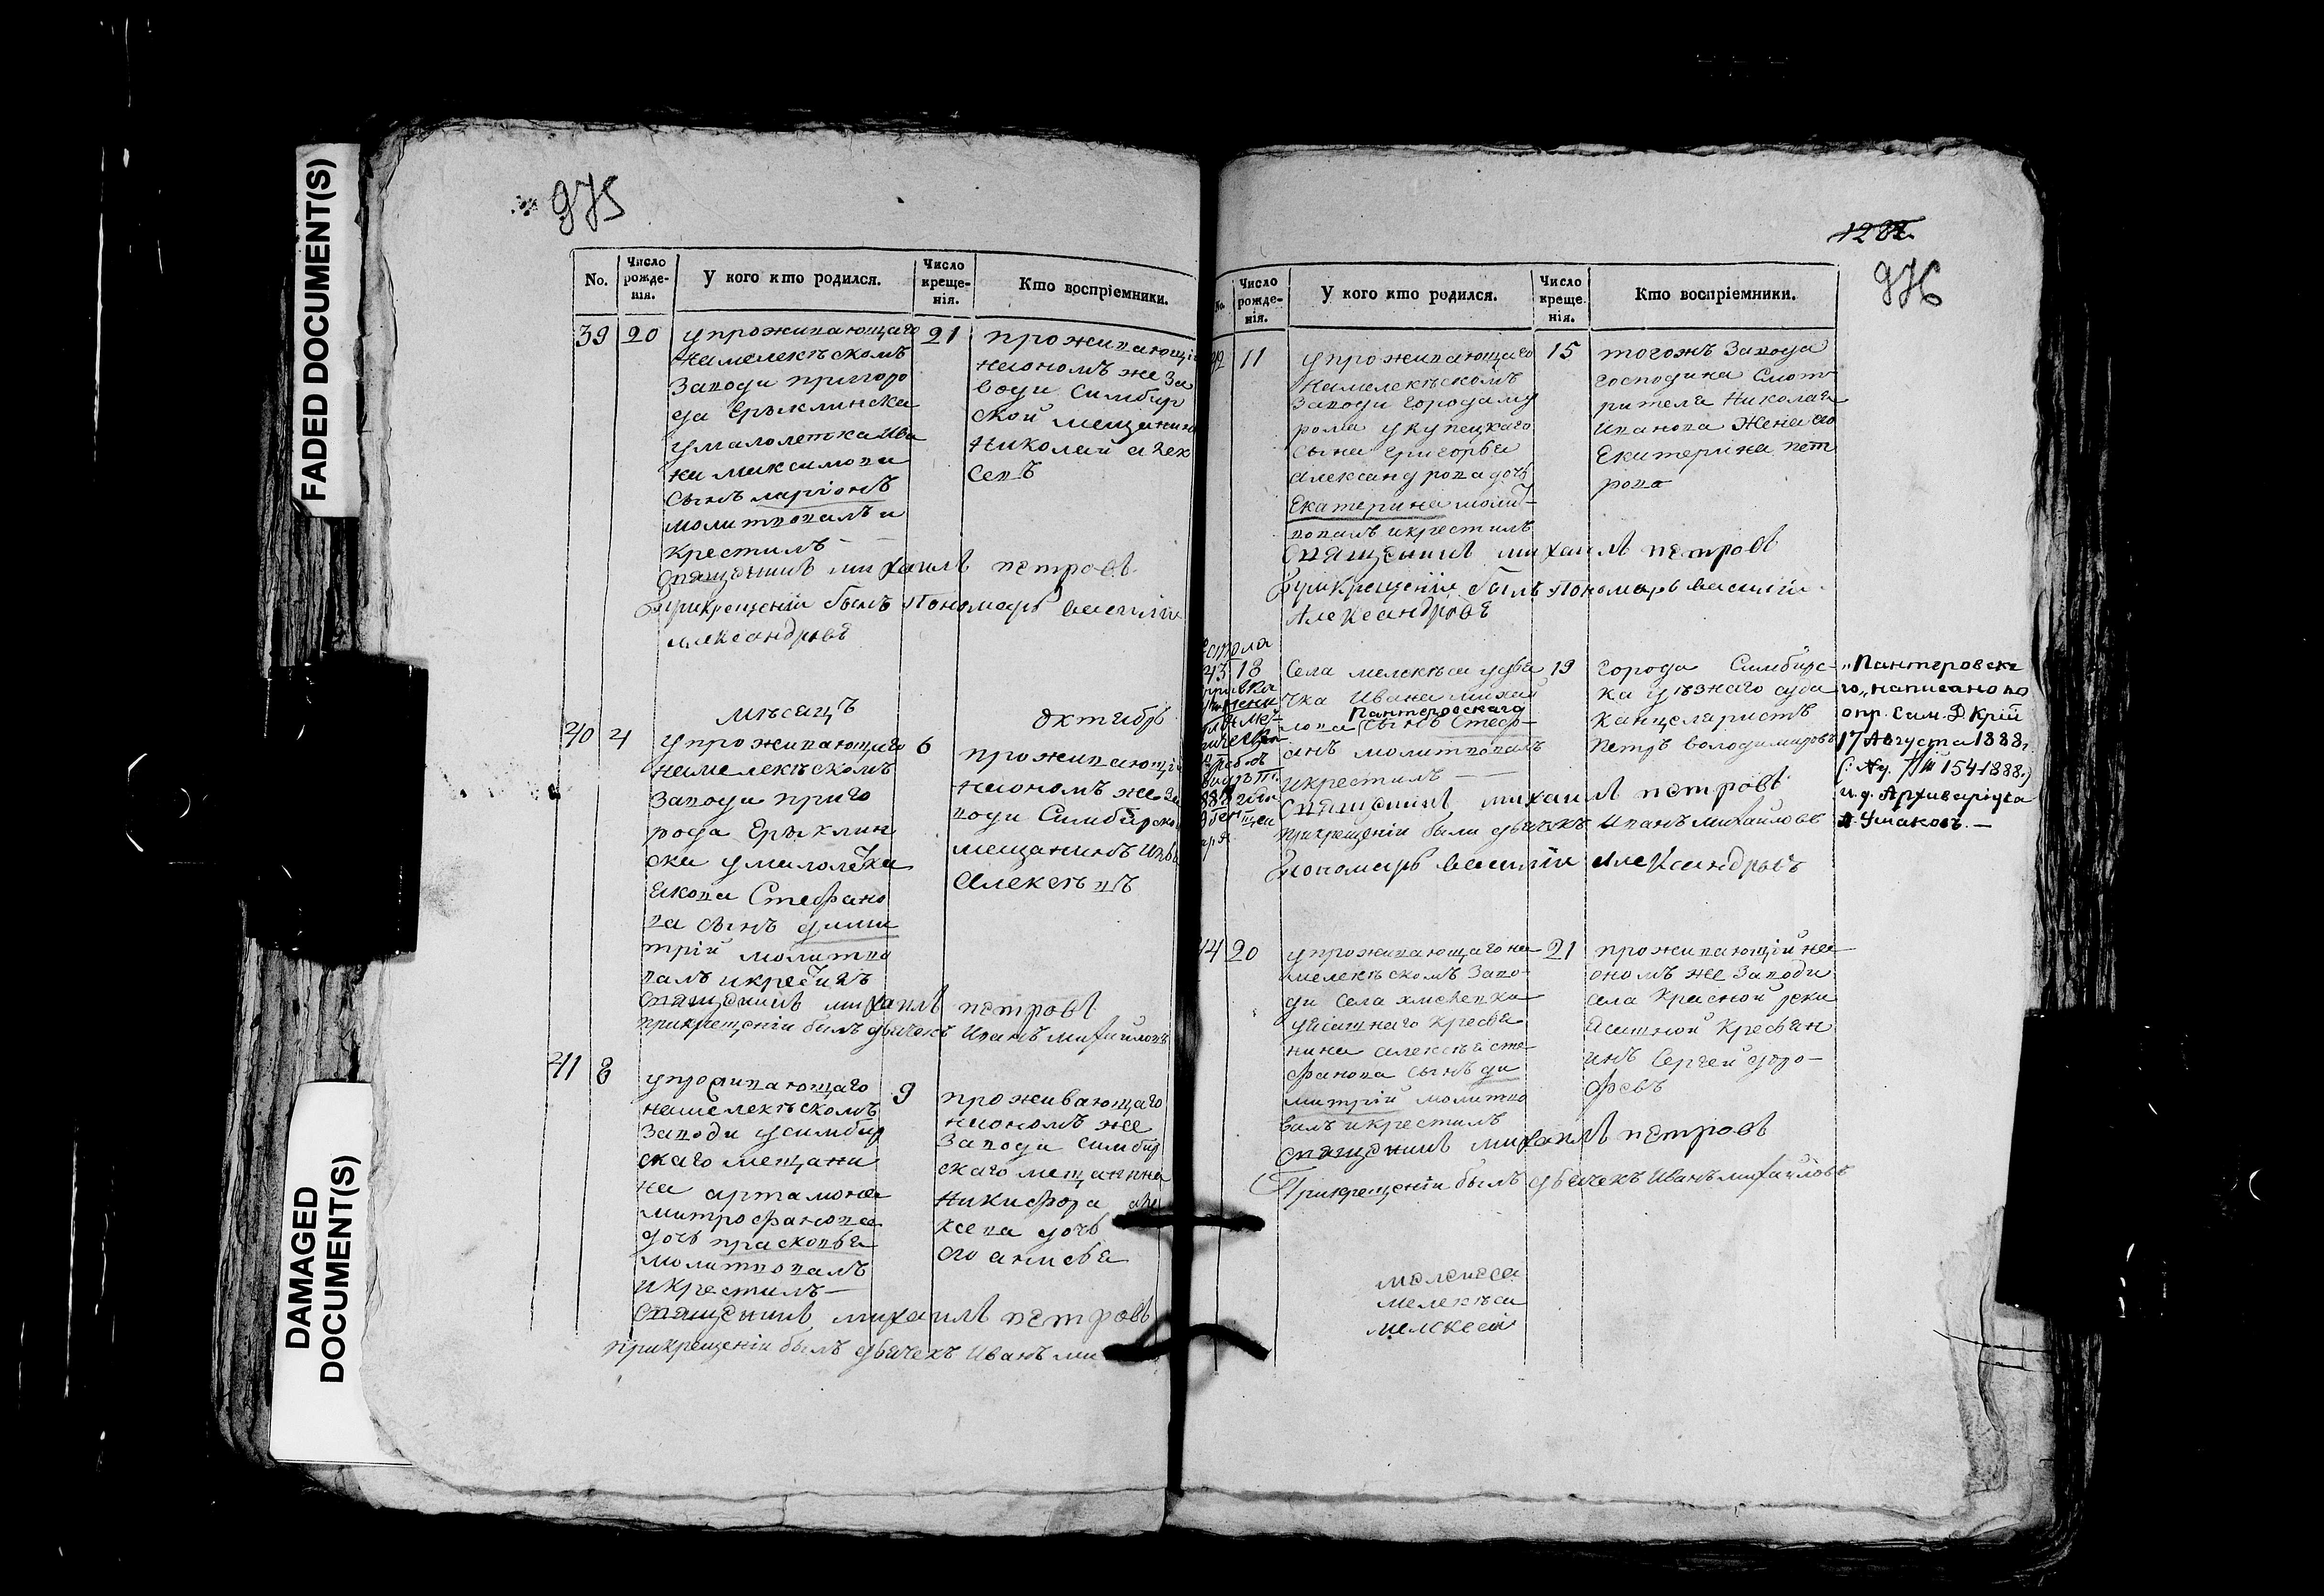 FADED DOCUMENT(S)
DAMAGED
DOCUMENT(S)
975
No.
Число рожде-нія.
У кого кто родился.
Число креще-нія.
Кто воспріемники.
39 20
упроживающаго
намелекѣскомъ
заводи пригоро
да Ерыклинска
умалолетка Ива
на максимова
сынъ ларіонъ
молитвовалъ и
крестилъ
21
проживающі
наономъ же за
води симбир
ской мещанин
николай алек
севъ
Священникъ михаилъ петровъ
прикрещеніи былъ Пономарь василіи
александровъ
мѣсяцъ
октябрь
40 4
упроживающаго
намелекѣскомъ
заводи приго
рода Ерыклин
ска умалолетка
Якова Стефано
ва сынъ дими
трій молитво
валъ икрестилъ
6
проживающі
наономъ же за
води Симбирско
мещанинъ Ива
Алексѣвъ
Священникъ михаилъ петровъ
прикрещеніи былъ дьячекъ Иванъ михайловъ
41 8
упроживающаго
намелекѣскомъ
заводи усимбир
скаго мещани
на артамона
митрофанова
дочь прасковья
молитвовалъ
икрестилъ
9
проживающаго
наономъ же
заводи симбир
скаго мещанина
никифора але
ксева дочь
его анисья
Священникъ михаилъ петровъ
прикрещеніи былъ дьячекъ Иванъ ми
976
No.
Число рожде-нія.
У кого кто родился.
Число креще-нія.
Кто воспріемники.
42 11
упроживающаго
намелекѣскомъ
заводи города му
рома укупецкаго
сына григорья
александрова дочь
Екатерина молит-
вовалъ икрестилъ
15
тогожъ завода
господина смот-
рителя николая
иванова жена его
Екатерина пет
рова
Священникъ михаилъ петровъ
прикрещеніи былъ пономарь василіи
Александровъ
43 18
Села мелекѣса удья
чка Ивана михай
Пантеровскаго
лова сынъ Стеф-
анъ молитвовалъ
икрестилъ
19
города Симбирс-
ка уѣзнаго суда
канцеляристъ
петръ володимировъ
„Пантеровска
го„ написано по
опр. Сим. Д. К-рій
17 Августа 1888 г.
и. д. Архиваріуса
Ушаковъ.
Священникъ михаилъ петровъ
прикрещеніи были дьячекъ Иванъ михайловъ
пономарь василіи александровъ
44 20
упроживающаго на
мелекѣскомъ заво-
ди села хмелевки
уясашнаго кресья
нина алексѣя сте
фанова сынъ ди
митрій молитво
валъ икрестилъ
21
проживающій на
ономъ же заводи
села красной реки
Ясашной кресьян
инъ Сергей доро-
февъ
Священникъ михаилъ петровъ
Прикрещеніи былъ дьячекъ Иванъ михайловъ
мелекеса
мелекѣса